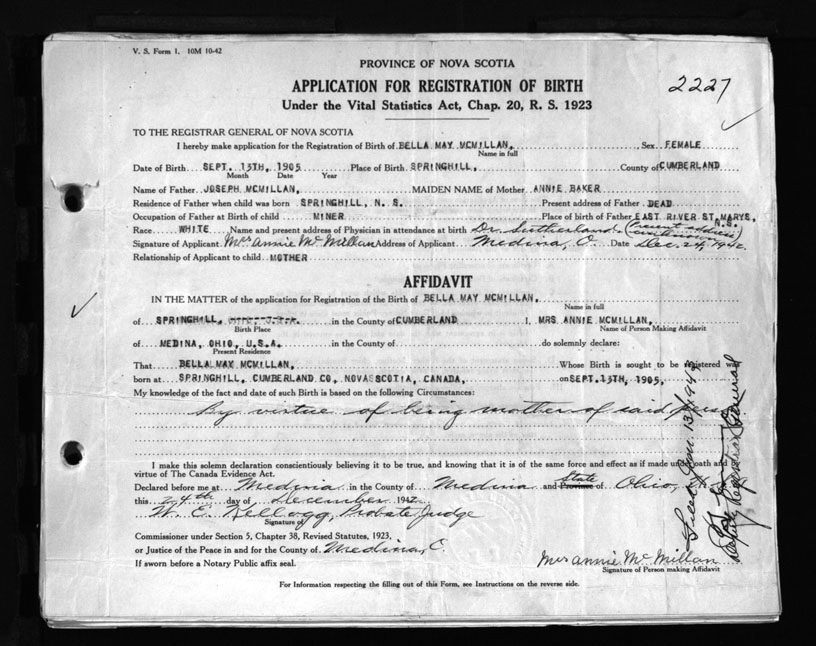 V. S. Form 1. 10M 10-42
PROVINCE OF NOVA SCOTIA
APPLICATION FOR REGISTRATION OF BIRTH
2227
Under the Vital Statistics Act, Chap. 20, R. S. 1923
TO THE REGISTRAR GENERAL OF NOVA SCOTIA
I hereby make application for the Registration of Birth of BELLA MAY MCMILLAN, Sex FEMALE
Name in full
Date of Birth SEPT. 13TH, 1905 Place of Birth SPRINGHILL, County of CUMBERLAND
Month Date Year
Name of Father JOSEPH MCMILLAN, MAIDEN NAME of Mother ANNIE BAKER
Residence of Father when child was born SPRINGHILL, N. S. Present address of Father DEAD
Occupation of Father at Birth of child MINER Place of birth of Father EAST RIVER ST. MARYS, N.S.
Race WHITE Name and present address of Physician in attendance at birth Dr. Sutherland. (Present address unknown)
Signature of Applicant Mrs Annie McMillan Address of Applicant Medina, O. Date Dec. 24, 1942.
Relationship of Applicant to child MOTHER
AFFIDAVIT
IN THE MATTER of the application for Registration of the Birth of BELLA MAY MCMILLAN,
Name in full
of SPRINGHILL, in the County of CUMBERLAND I, MRS ANNIE MCMILLAN,
Birth Place Name of Person Making Affidavit
of MEDINA, OHIO, U.S.A. in the County of do solemnly declare:
Present Residence
That BELLA MAY MCMILLAN, Whose Birth is sought to be registered was
born at SPRINGHILL, CUMBERLAND CO, NOVA SCOTIA, CANADA, on SEPT. 13TH, 1905,
My knowledge of the fact and date of such Birth is based on the following Circumstances:
By virtue of being mother of said person.
I make this solemn declaration conscientiously believing it to be true, and knowing that it is of the same force and effect as if made under oath and by
virtue of The Canada Evidence Act.
Declared before me at Medina in the County of Medina and State Province of Ohio,
this 24th day of December 1942
W. E. Kellogg, Probate Judge
Signature of
Commissioner under Section 5, Chapter 38, Revised Statutes, 1923,
or Justice of the Peace in and for the County of Medina, O.
If sworn before a Notary Public affix seal.
Mrs Annie McMillan
Signature of Person making Affidavit
For Information respecting the filling out of this Form, see Instructions on the reverse side.
Deputy Registrar General